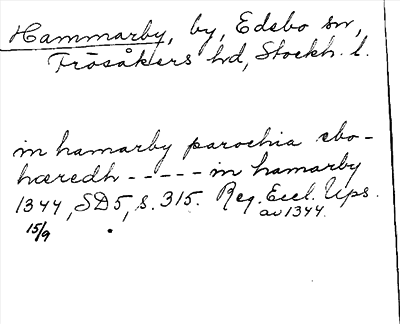 Hammarby, by, Edebo sn,
Frösåkers hd, Stockh. l.
in hamarby parochia ebo-
hæredh ----- in hamarby
1344, SD5, s. 315. Reg. Eccl. Ups.
av 1344.
15/9